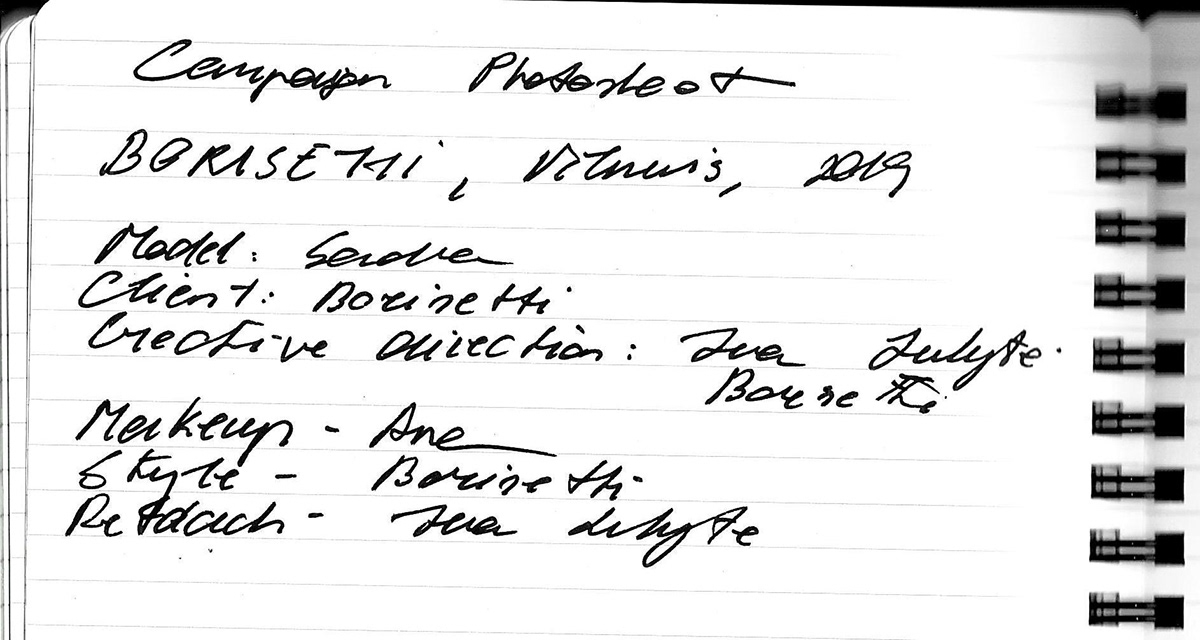 Campaign Photoshoot
BORISETTI, Vilnius, 2019
Model: Sandra
Client: Borisetti
Creative direction: Ieva
Borisetti
Makeup - Ana
Style - Borisetti
Retouch - Ieva